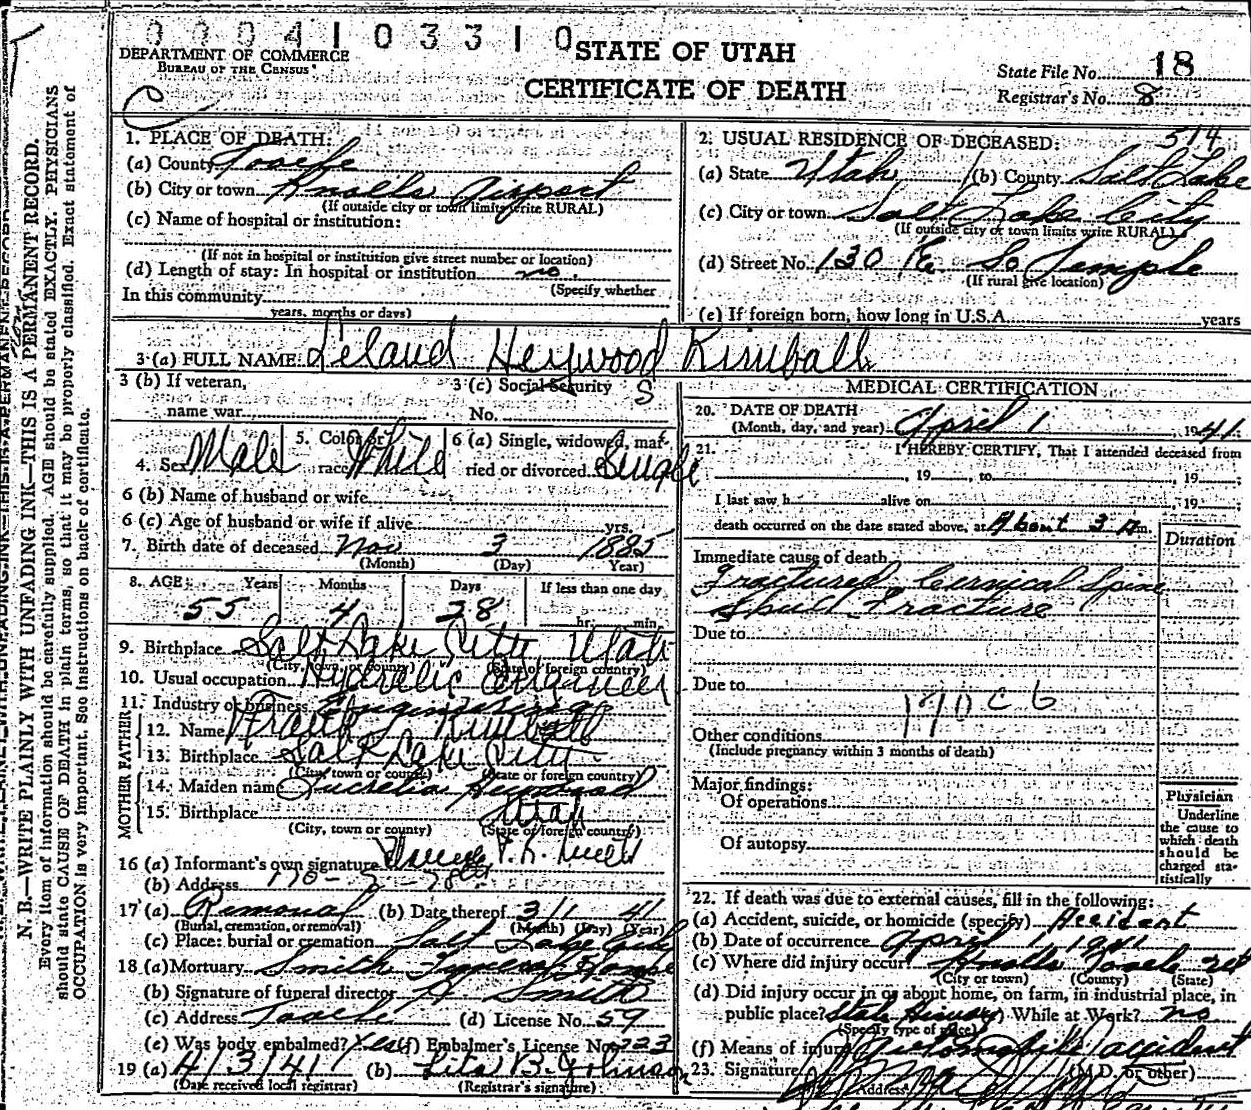 0004103310
DEPARTMENT OF COMMERCE
BUREAU OF THE CENSUS
STATE OF UTAH
CERTIFICATE OF DEATH
State File No. 18
Registrar's No. 8
N. B.—WRITE PLAINLY WITH UNFADING INK—THIS IS A PERMANENT RECORD.
Every item of information should be carefully supplied. AGE should be stated EXACTLY. PHYSICIANS
should state CAUSE OF DEATH in plain terms, so that it may be properly classified. Exact statement of
OCCUPATION is very important. See instructions on back of certificate.
1. PLACE OF DEATH:
(a) County Tooele
(b) City or town Knolls Airport
(If outside city or town limits write RURAL)
(c) Name of hospital or institution:
(If not in hospital or institution give street number or location)
(d) Length of stay: In hospital or institution no.
(Specify whether
In this community
years, months or days)
2. USUAL RESIDENCE OF DECEASED: 514
(a) State Utah (b) County Salt Lake
(c) City or town Salt Lake City
(If outside city or town limits write RURAL)
(d) Street No. 130 E. So Temple
(If rural give location)
(e) If foreign born, how long in U.S.A. years
3 (a) FULL NAME Leland Heywood Kimball
3 (b) If veteran,
name war
3 (c) Social Security S
No.
4. Sex Male
5. Color or
race White
6 (a) Single, widowed, mar-
ried or divorced Single
6 (b) Name of husband or wife
6 (c) Age of husband or wife if alive yrs.
7. Birth date of deceased Nov 3 1885
(Month) (Day) (Year)
8. AGE: Years Months Days If less than one day
55 4 28 hr. min.
9. Birthplace Salt Lake City Utah
(City, town, or county) (State or foreign country)
10. Usual occupation Hydrolic Engineer
11. Industry or business Engineering
FATHER
12. Name Frank Kimball
13. Birthplace Salt Lake City
(City, town or county) (State or foreign country)
MOTHER
14. Maiden name Lucretia Heywood
15. Birthplace Utah
(City, town or county) (State of foreign country)
16 (a) Informant's own signature
(b) Address
17 (a) Removal (b) Date thereof 3/1 41
(Burial, cremation, or removal) (Month) (Day) (Year)
(c) Place: burial or cremation Salt Lake City
18 (a) Mortuary Smith Funeral Home
(b) Signature of funeral director Smith
(c) Address Tooele (d) License No. 59
(e) Was body embalmed? Yes (f) Embalmer's License No. 223
19 (a) 4/3/41 (b) Lita B. Johnson
(Date received local registrar) (Registrar's signature)
MEDICAL CERTIFICATION
20. DATE OF DEATH
(Month, day, and year) April 1, 1941
21. I HEREBY CERTIFY, That I attended deceased from
, 19 , to , 19 ;
I last saw h alive on , 19 ;
death occurred on the date stated above, at About 3 m.
Duration
Immediate cause of death
Fractured Cervical Spine
Skull Fracture
Due to
Due to
170 c 6
Other conditions
(Include pregnancy within 3 months of death)
Major findings:
Of operations
Of autopsy
Physician
Underline
the cause to
which death
should be
charged sta-
tistically
22. If death was due to external causes, fill in the following:
(a) Accident, suicide, or homicide (specify) Accident
(b) Date of occurrence April 1 1941
(c) Where did injury occur? Knolls Tooele Ut
(City or town) (County) (State)
(d) Did injury occur in or about home, on farm, in industrial place, in
public place? State Highway While at Work? no
(Specify type of place)
(f) Means of injury Automobile accident
23. Signature (M.D. or other)
Address